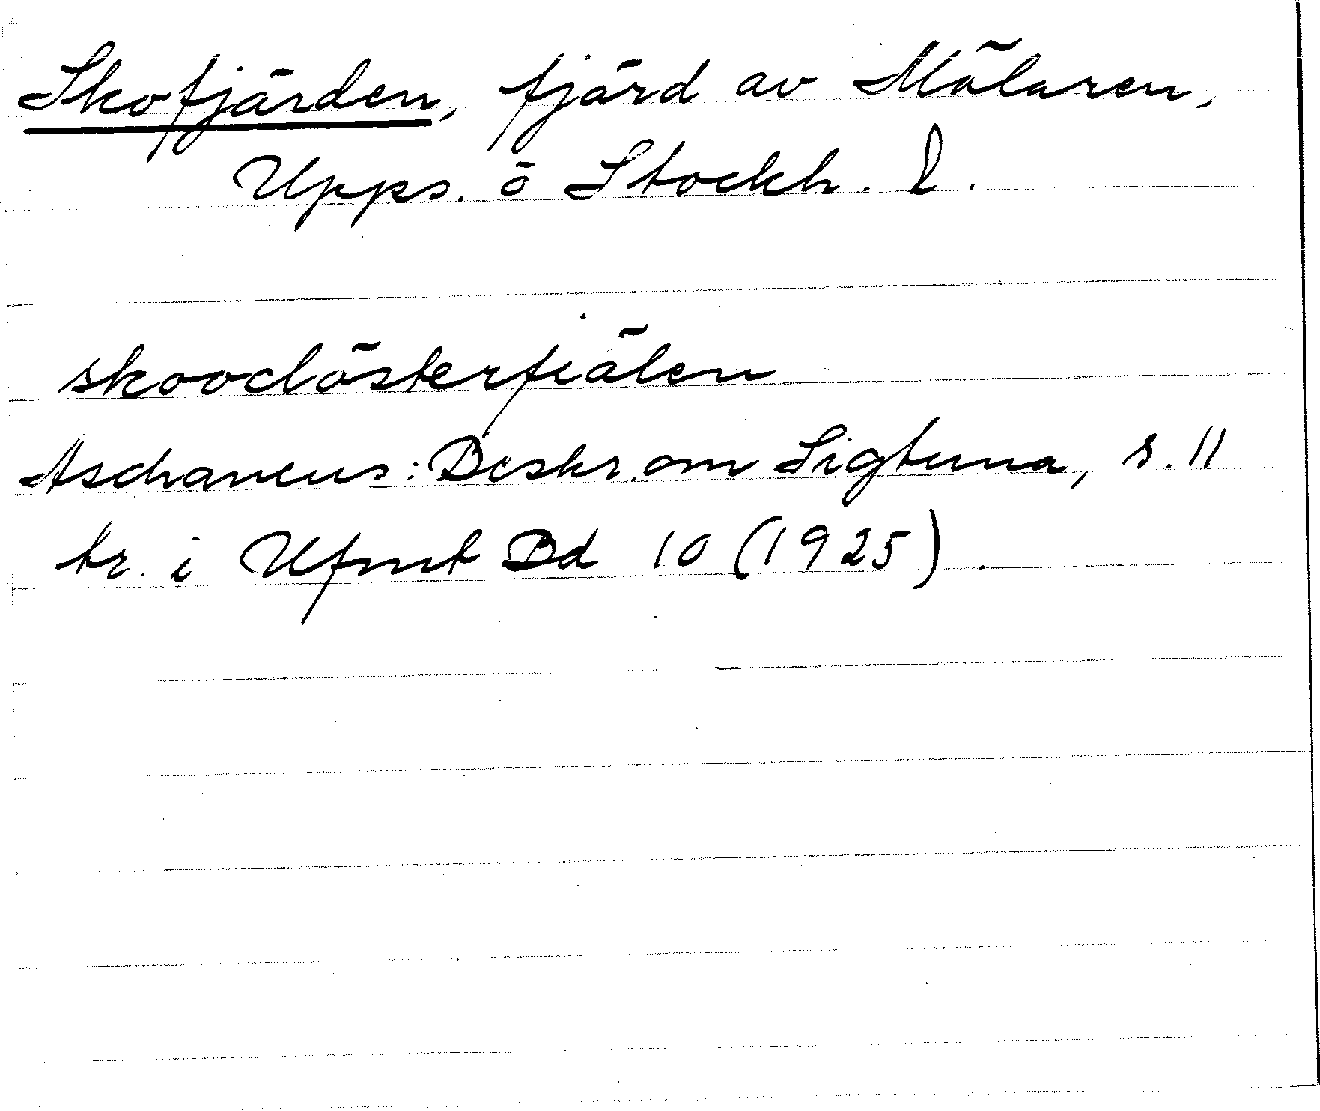 Skofjärden, fjärd av Mälaren,
Upps. o Stockh. l.
skooclösterfiälen
Aschaneus: Beskr. om Sigtuna, s. 11
tr. i Ufmt Bd 10 (1925).